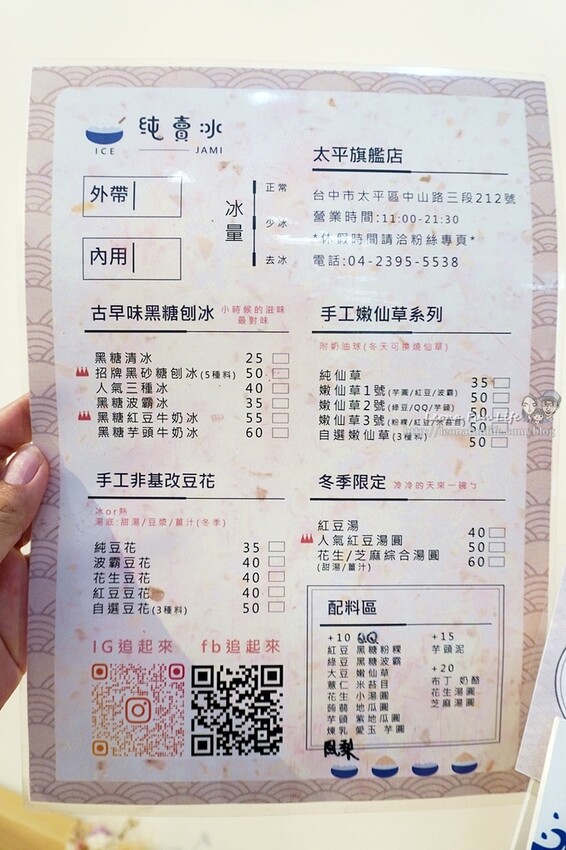 純賣冰
ICE JAMI
外帶
內用
冰量
正常
少冰
去冰
太平旗艦店
台中市太平區中山路三段212號
營業時間:11:00-21:30
*休假時間請洽粉絲專頁*
電話:04-2395-5538
古早味黑糖刨冰 小時候的滋味最對味
黑糖清冰 25
招牌黑砂糖刨冰(5種料) 50
人氣三種冰 40
黑糖波霸冰 35
黑糖紅豆牛奶冰 55
黑糖芋頭牛奶冰 60
手工嫩仙草系列
附奶油球(冬天可換燒仙草)
純仙草 35
嫩仙草1號(芋圓/紅豆/波霸) 50
嫩仙草2號(綠豆/QQ/芋頭) 50
嫩仙草3號(粉粿/紅豆/米苔目) 50
自選嫩仙草(3種料) 50
手工非基改豆花
冰or熱
湯底:甜湯/豆漿/薑汁(冬季)
純豆花 35
波霸豆花 40
花生豆花 40
紅豆豆花 40
自選豆花(3種料) 50
冬季限定 冷冷的天來一碗ㄅ
紅豆湯 40
人氣紅豆湯圓 50
花生/芝麻綜合湯圓 60
(甜湯/薑汁)
IG追起來 fb追起來
配料區
+10 QQ
紅豆 黑糖粉粿
綠豆 黑糖波霸
大豆 嫩仙草
薏仁 米苔目
花生 小湯圓
蒟蒻 地瓜圓
芋頭 紫地瓜圓
煉乳 愛玉 芋圓
鳳梨
+15
芋頭泥
+20
布丁 奶酪
花生湯圓
芝麻湯圓